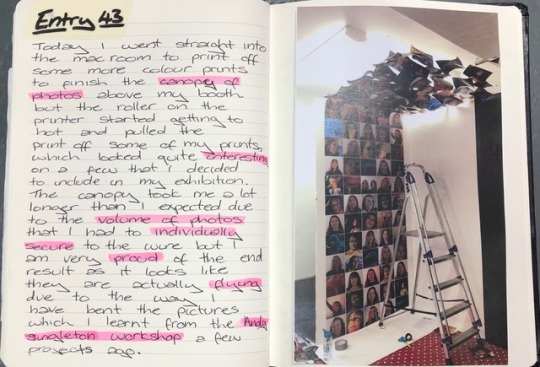 Entry 43
Today I went straight into
the mac room to print off
some more colour prints
to finish the canopy of
photos above my booth
but the roller on the
printer started getting to
hot and pulled the
print off some of my prints,
which looked quite interesting
on a few that I decided
to include in my exhibition.
The canopy took me a lot
longer than I expected due
to the volume of photos
that I had to individually
secure to the wire but I
am very proud of the end
result as it looks like
they are actually flying
due to the way I
have bent the pictures
which I learnt from the Andy
singleton workshop a few
projects ago.